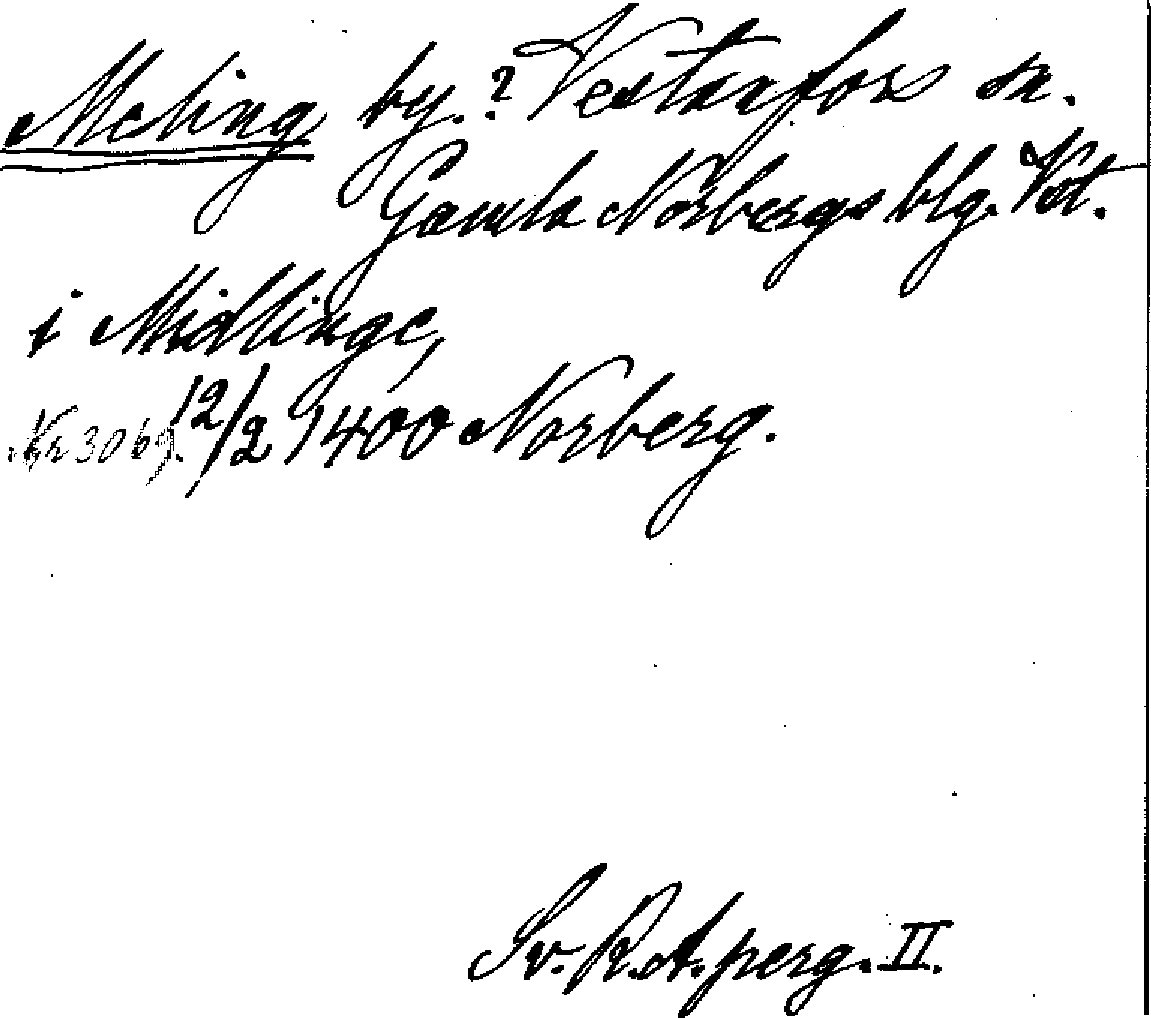 Meling by.? Vesterfors sn.
Gamla Norbergs blg. Vst.
i Midlinge,
Nr 3069. 12/2 1400 Norberg.
Sv. R. A. perg. II.